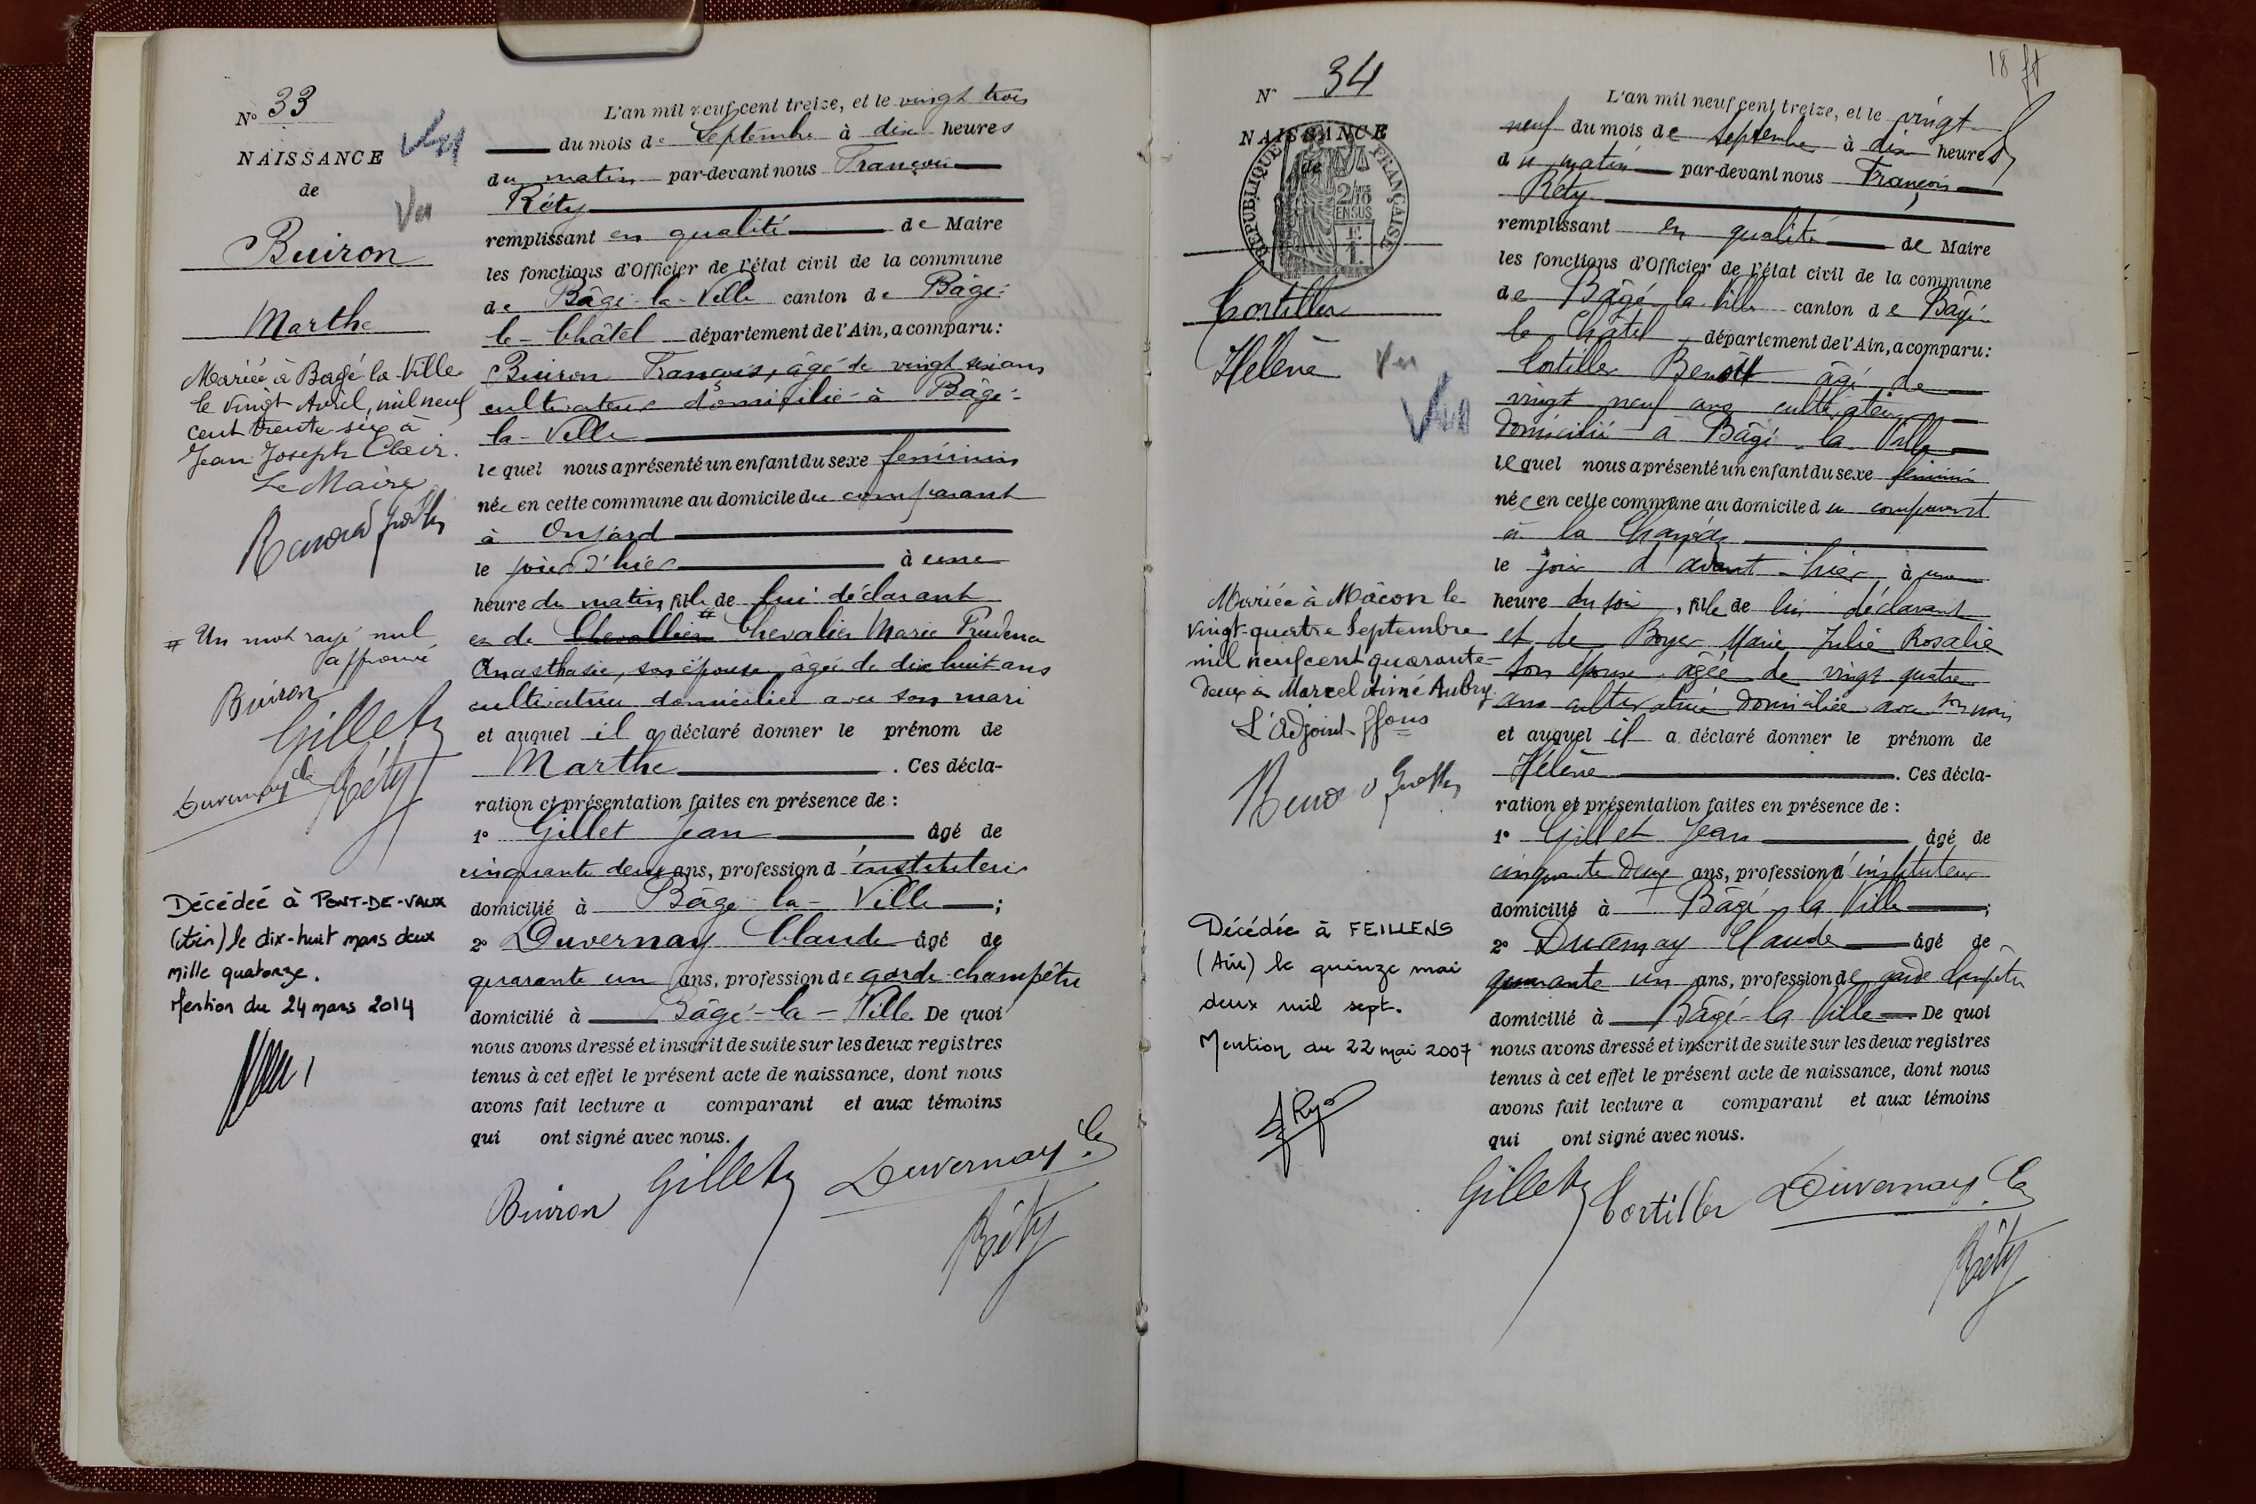 N° 33
NAISSANCE
de
Buiron
Marthe
Vu
Vu
Mariée à Bagé la Ville
le vingt Avril, mil neuf
cent trente six à
Jean Joseph Clair.
Le Maire
# Un mot rayé nul
approuvé
Buiron
Gillet J
Duvernay Cde
Réty
Décédée à PONT-DE-VAUX
(Ain) le dix-huit mars deux
mille quatorze.
Mention du 24 mars 2014
L'an mil neuf cent treize, et le vingt trois
du mois de Septembre à dix heures
du matin par-devant nous François
Réty
remplissant en qualité de Maire
les fonctions d'Officier de l'état civil de la commune
de Bâgé-la-Ville canton de Bâgé-
le-Châtel département de l'Ain, a comparu:
Buiron François, âgé de vingt six ans
cultivateur domicilié à Bâgé-
la-Ville
lequel nous a présenté un enfant du sexe féminin
née en cette commune au domicile du comparant
à Onjard
le jour d'hier à une
heure du matin, fille de lui déclarant
et de Chevallier # Chevalier Marie Prudence
Anasthasie, son épouse, âgée de dix huit ans
cultivatrice domiciliée avec son mari
et auquel il a déclaré donner le prénom de
Marthe. Ces décla-
ration et présentation faites en présence de :
1° Gillet Jean âgé de
cinquante deux ans, profession d'instituteur
domicilié à Bâgé-la-Ville ;
2° Duvernay Claude âgé de
quarante un ans, profession de garde-champêtre
domicilié à Bâgé-la-Ville. De quoi
nous avons dressé et inscrit de suite sur les deux registres
tenus à cet effet le présent acte de naissance, dont nous
avons fait lecture a comparant et aux témoins
qui ont signé avec nous.
Buiron Gillet J Duvernay Cde
Réty
18
N° 34
NAISSANCE
de
REPUBLIQUE FRANÇAISE
2/10
EN SUS
Cortiller
Hélène
Vu
Vu
Mariée à Mâcon le
vingt-quatre Septembre
mil neuf cent quarante-
deux à Marcel Aimé Aubry.
L'Adjoint ffons
Décédée à FEILLENS
(Ain) le quinze mai
deux mil sept.
Mention du 22 mai 2007
L'an mil neuf cent treize, et le vingt
neuf du mois de septembre à dix heures
du matin par-devant nous François
Réty
remplissant en qualité de Maire
les fonctions d'Officier de l'état civil de la commune
de Bâgé-la-Ville canton de Bâgé-
le Châtel département de l'Ain, a comparu:
Cortiller Benoît âgé de
vingt neuf ans cultivateur
domicilié à Bâgé-la-Ville
lequel nous a présenté un enfant du sexe féminin
née en cette commune au domicile du comparant
à la
le jour d'avant-hier à une
heure du soir, fille de lui déclarant
et de Boyer Marie Julie Rosalie
son épouse âgée de vingt quatre
ans cultivatrice domiciliée avec son mari
et auquel il a déclaré donner le prénom de
Hélène. Ces décla-
ration et présentation faites en présence de :
1° Gillet Jean âgé de
cinquante deux ans, profession d'instituteur
domicilié à Bâgé-la-Ville ;
2° Duvernay Claude âgé de
quarante un ans, profession de garde champêtre
domicilié à Bâgé-la-Ville. De quoi
nous avons dressé et inscrit de suite sur les deux registres
tenus à cet effet le présent acte de naissance, dont nous
avons fait lecture a comparant et aux témoins
qui ont signé avec nous.
Gillet J Cortiller Duvernay Cde
Réty